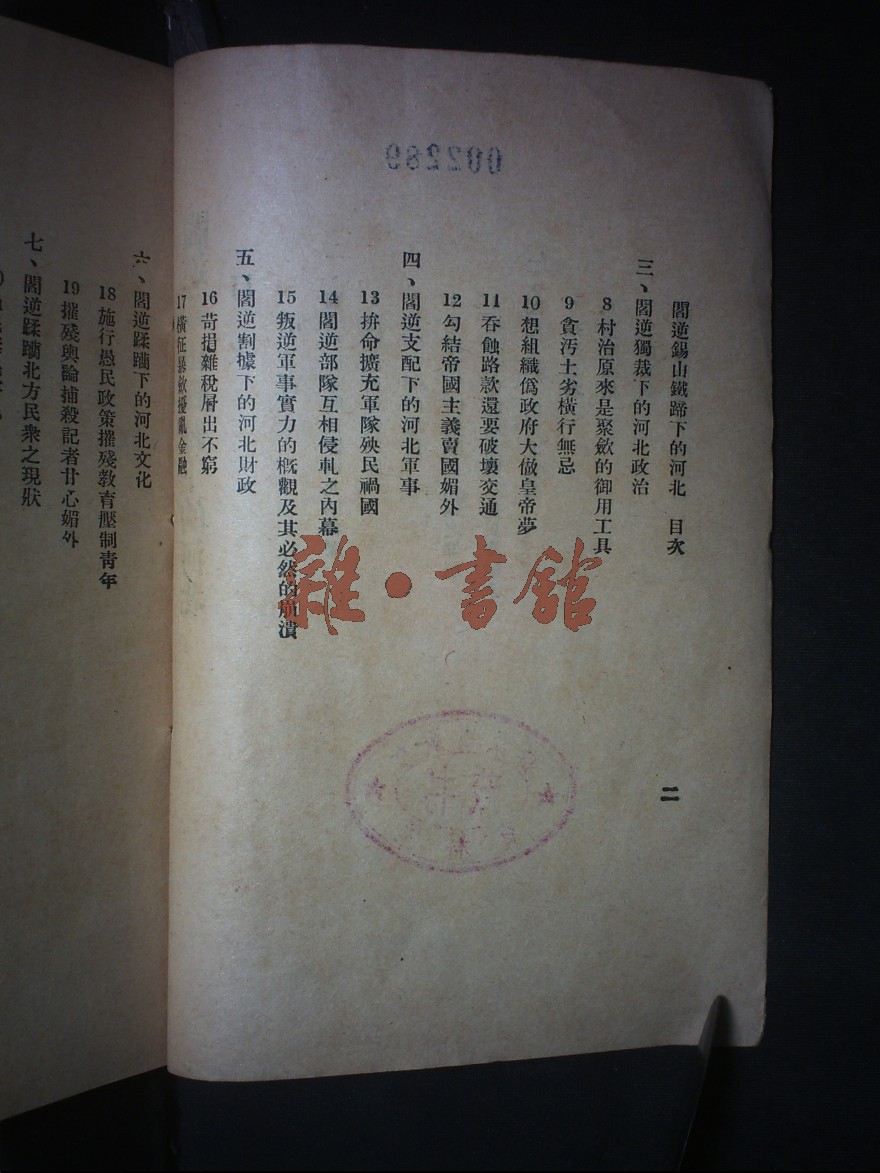 002289
閻逆錫山鐵蹄下的河北 目次
二
三、閻逆獨裁下的河北政治
8 村治原來是聚斂的御用工具
9 貪汚土劣橫行無忌
10 想組織僞政府大做皇帝夢
11 吞蝕路款還要破壞交通
12 勾結帝國主義賣國媚外
四、閻逆支配下的河北軍事
13 拚命擴充軍隊殃民禍國
14 閻逆部隊互相侵軋之內幕
15 叛逆軍事實力的槪觀及其必然的崩潰
五、閻逆割據下的河北財政
16 苛捐雜稅層出不窮
17 橫征暴斂擾亂金融
六、閻逆蹂躪下的河北文化
18 施行愚民政策摧殘敎育壓制靑年
19 摧殘輿論捕殺記者甘心媚外
七、閻逆蹂躪北方民衆之現狀
雜·書館